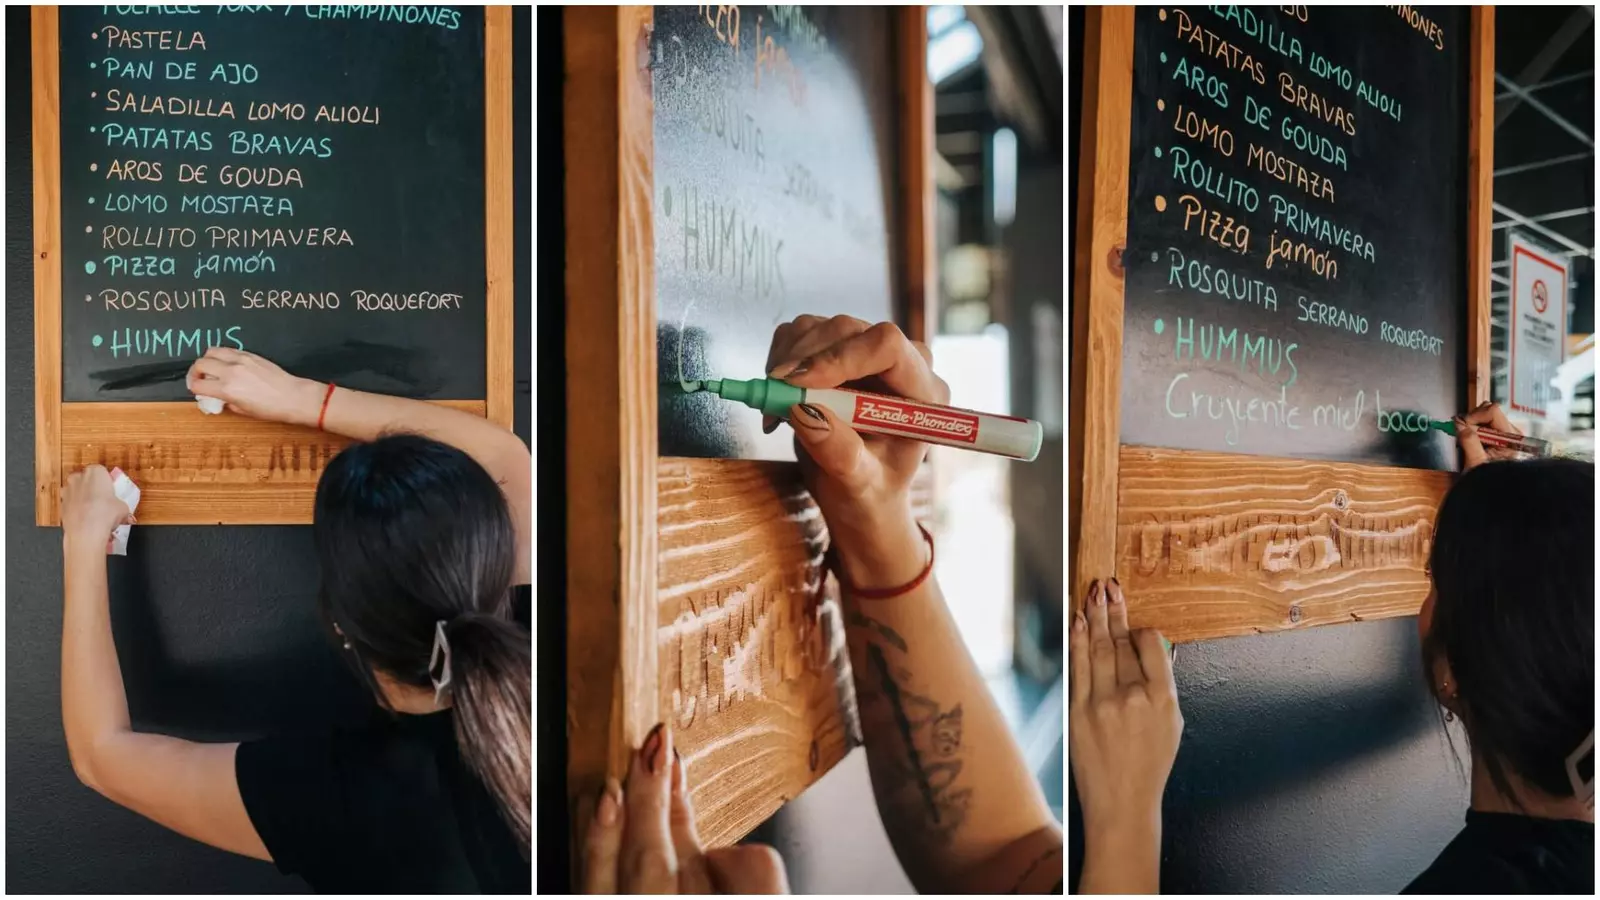 CHAMPIÑONES
• PASTELA
• PAN DE AJO
• SALADILLA LOMO ALIOLI
• PATATAS BRAVAS
• AROS DE GOUDA
• LOMO MOSTAZA
• ROLLITO PRIMAVERA
• Pizza jamón
• ROSQUITA SERRANO ROQUEFORT
• HUMMUS
jamón
ROSQUITA
• HUMMUS
C
Zande-Phondeg
SALADILLA LOMO ALIOLI
• PATATAS BRAVAS
• AROS DE GOUDA
• LOMO MOSTAZA
• ROLLITO PRIMAVERA
• Pizza jamón
• ROSQUITA SERRANO ROQUEFORT
• HUMMUS
Crujiente miel baco